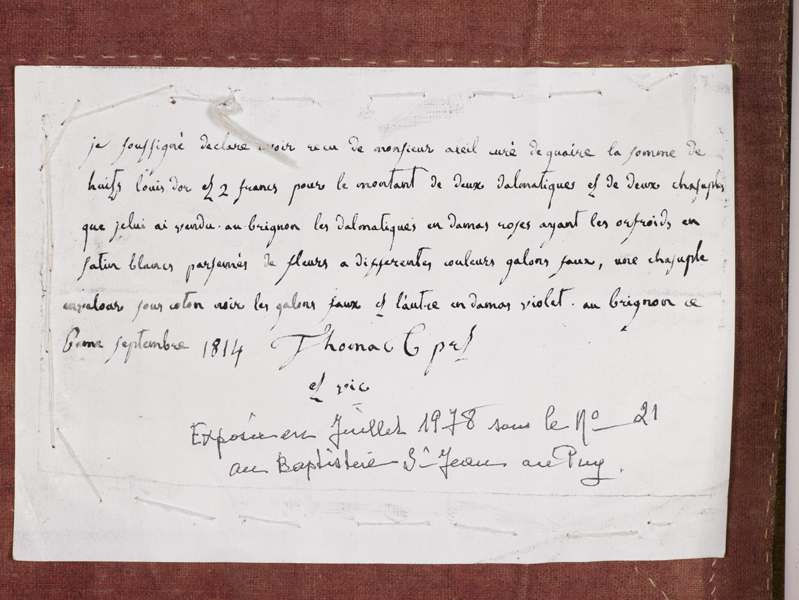 je soussigné declare avoir recu de monsieur areil curé de quaire la somme de
huits louis dor et 2 francs pour le montant de deux dalmatiques et de deux chasuples
que jelui ai vendu. au brignon les dalmatiques en damas roses ayant les orfroids en
satin blancs parsemés de fleurs a differentes couleurs galons faux, une chasuple
envelour sous coton noir les galons faux et l'autre en damas violet. au brignon ce
6eme septembre 1814 Thomas C pet
et vic
Exposée en Juillet 1978 sous le No 21
au Baptistère St Jean au Puy.